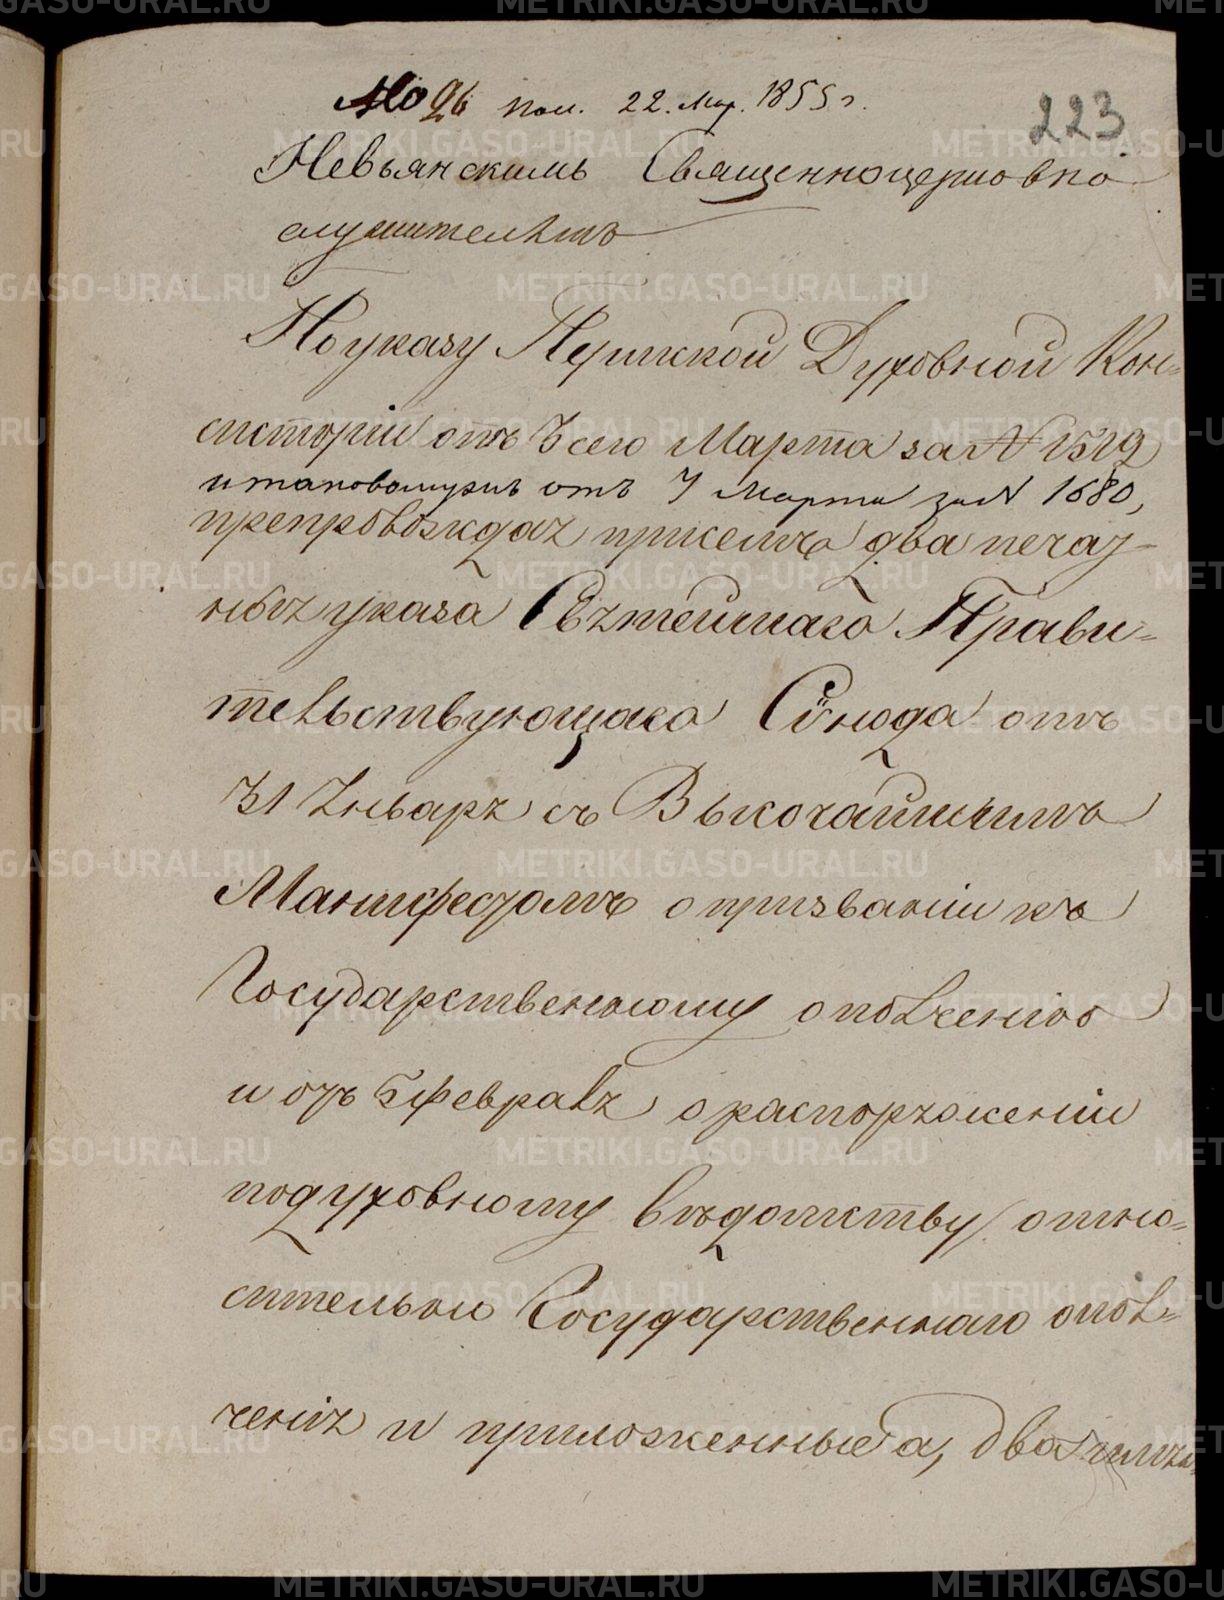 № 26 пол. 22. Мар. 1855 г.
223
Невьянскимъ Священноцерковно
служителямъ
По указу Пермской Духовной Кон=
систоріи отъ 3 сего Марта за № 1512
и таковомужъ отъ 7 Марта за № 1680,
препровождая присемъ два печат-
ныя указа Святѣйшаго Прави=
тельствующаго Сѵнода отъ
31 Января съ Высочайшимъ
Манифестомъ о призваніи къ
Государственному ополченію
и отъ 5 февраля о распоряженіи
по духовному вѣдомству отно=
сительно Государственнаго опол=
ченія и приложенныя, два
METRIKI.GASO-URAL.RU